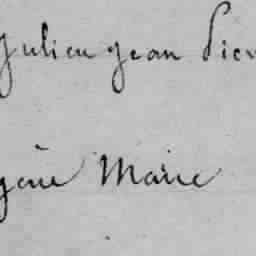 Julien Jean Pier
gène Marie